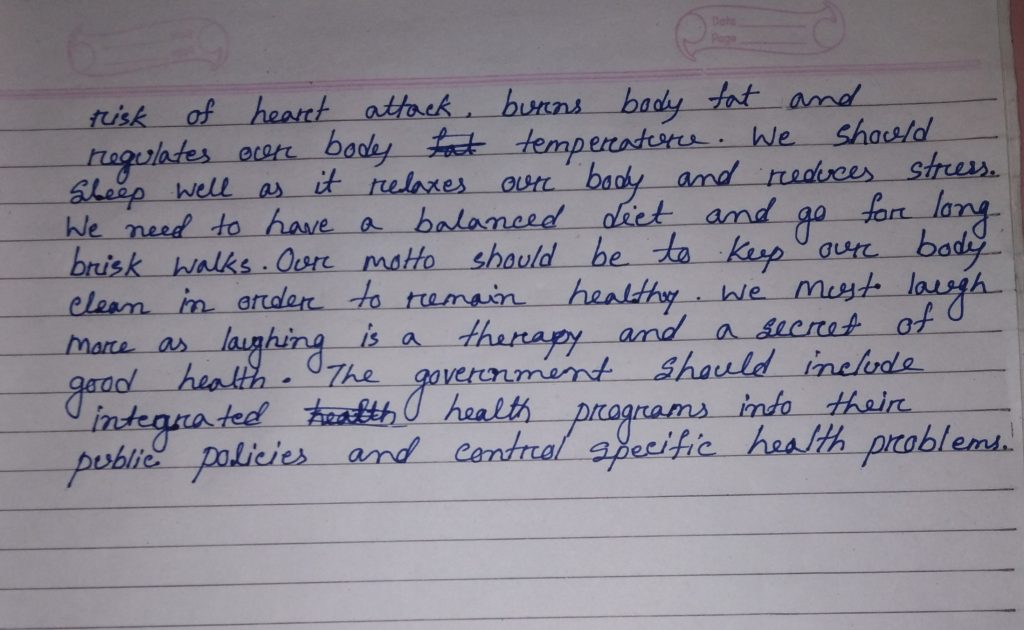 Date
Page
risk of heart attack, burns body fat and
regulates our body fat temperature. We should
sleep well as it relaxes our body and reduces stress.
We need to have a balanced diet and go for long
brisk walks. Our motto should be to keep our body
clean in order to remain healthy. We must laugh
more as laughing is a therapy and a secret of
good health. The government should include
integrated health health programs into their
public policies and control specific health problems.